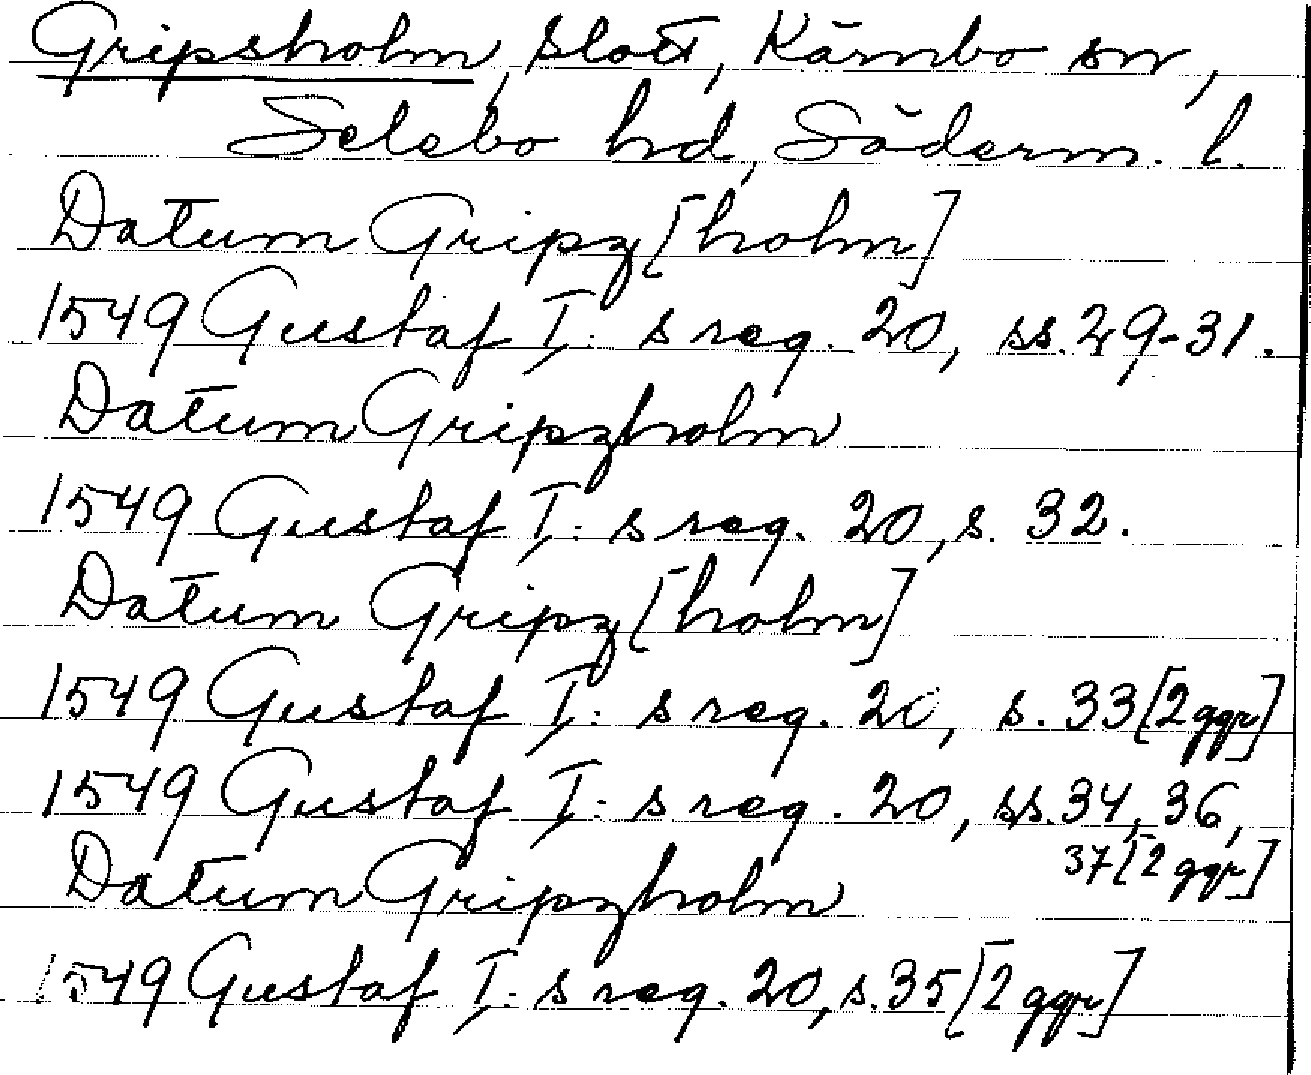 Gripsholm, slott, Kärnbo sn,
Selebo hd, Söderm. l.
Datum Gripz[holm]
1549 Gustaf I:s reg. 20, ss. 29-31.
Datum Gripzholm
1549 Gustaf I:s reg. 20, s. 32.
Datum Gripz[holm]
1549 Gustaf I:s reg. 20, s. 33 [2 ggr]
1549 Gustaf I:s reg. 20, ss. 34, 36,
37 [2 ggr]
Datum Gripzholm
1549 Gustaf I:s reg. 20, s. 35 [2 ggr]